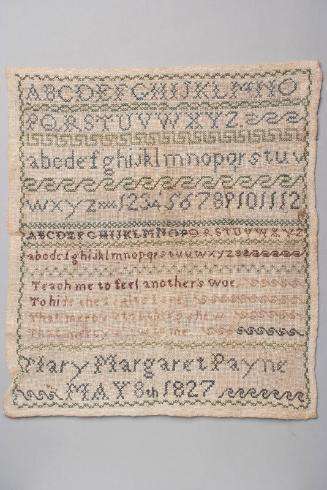 ABCDEFGHIJKLMNO
PQRSTUVWXYZ
abcdefghijklmnopqrstuv
wxyz 123456789101112
ABCDEFGHIJKLMNOPQRSTUVWXYZ
abcdefghijklmnopqrstuvwxyz
Teach me to feel another's woe
To hide the I see
That mercy I to others show
That mercy me
Mary Margaret Payne
MAY 8th 1827